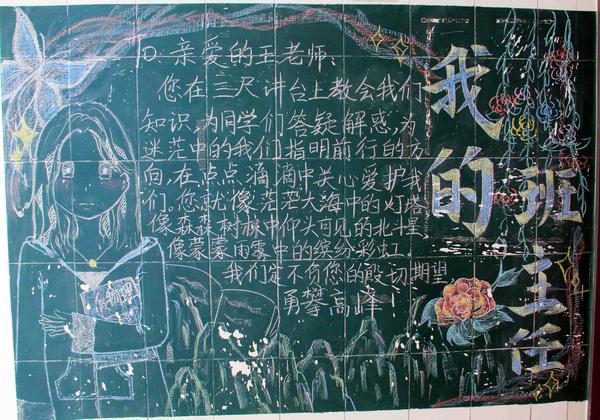 我的
班主任
亲爱的王老师:
您在三尺讲台上教会我们
知识,为同学们答疑解惑,为
迷茫中的我们指明前行的方
向,在点点滴滴中关心爱护我
们,您就像茫茫大海中的灯塔
像森森树林中仰头可见的北斗星
像蒙蒙雨雾中的缤纷彩虹
我们定不负您的殷切期望
勇攀高峰!
物理